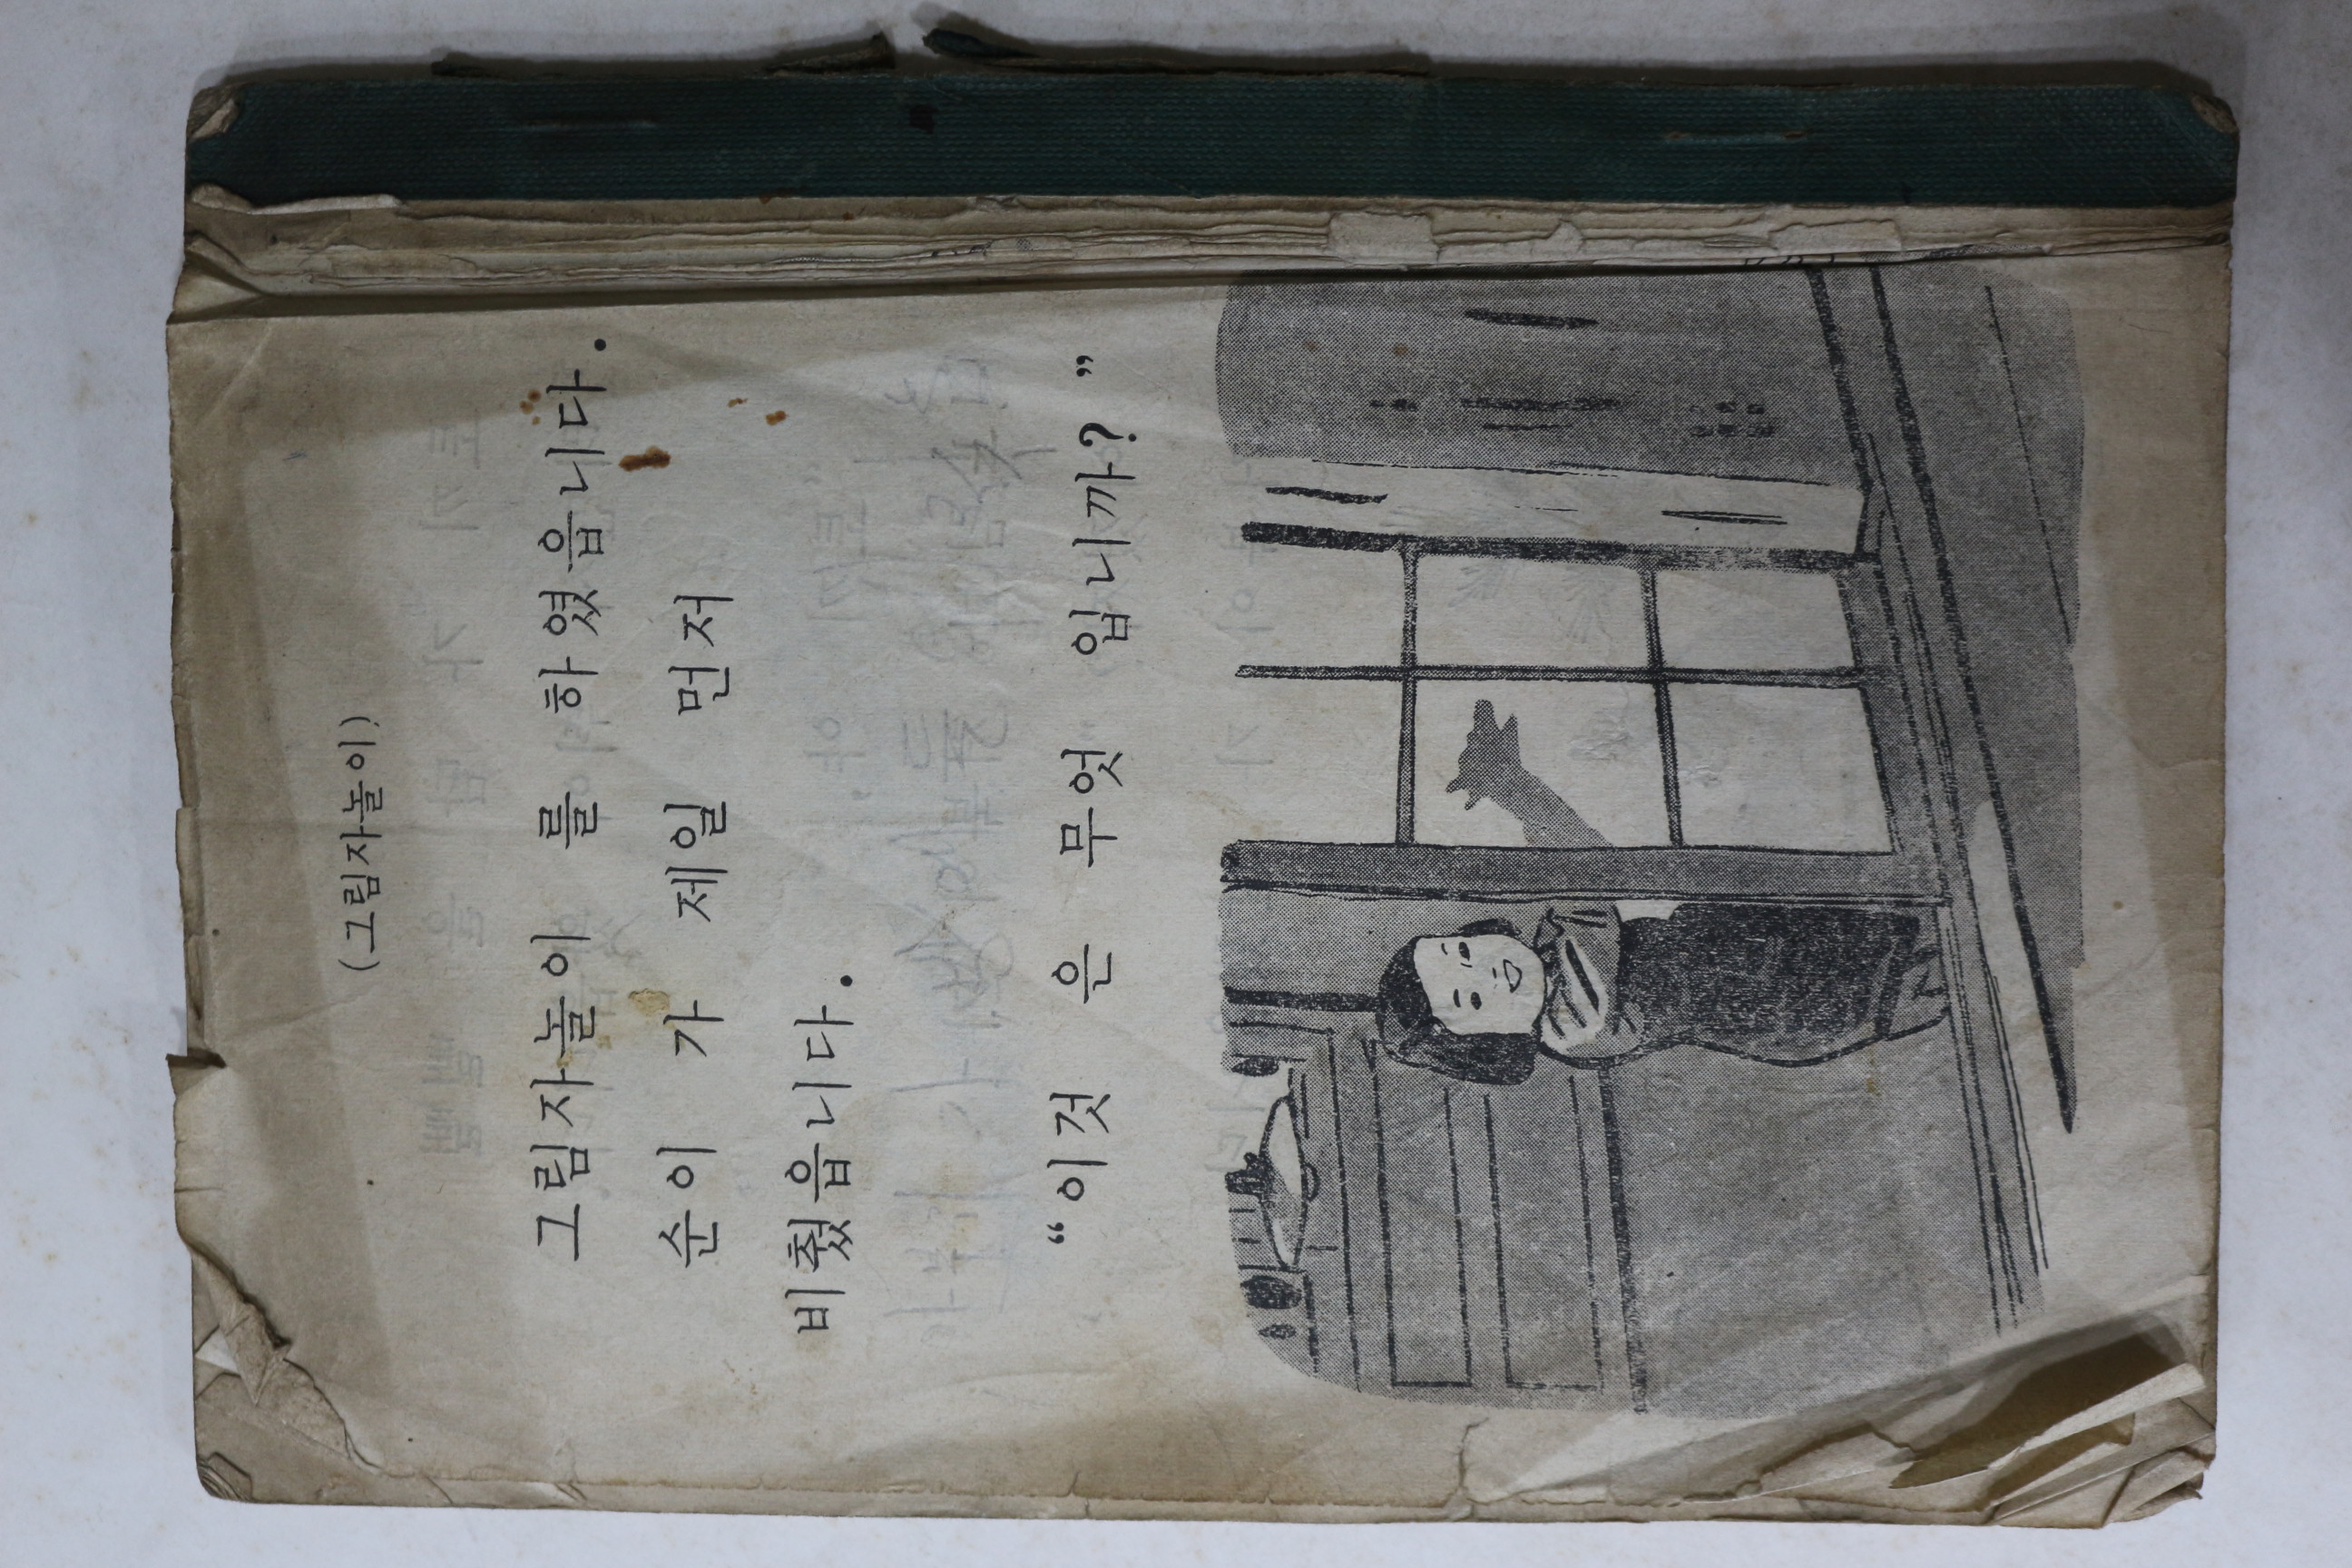 (그림자놀이)
그림자놀이 를 하였읍니다.
순이 가 제일 먼저
비췄읍니다.
“이것 은 무엇 입니까?”